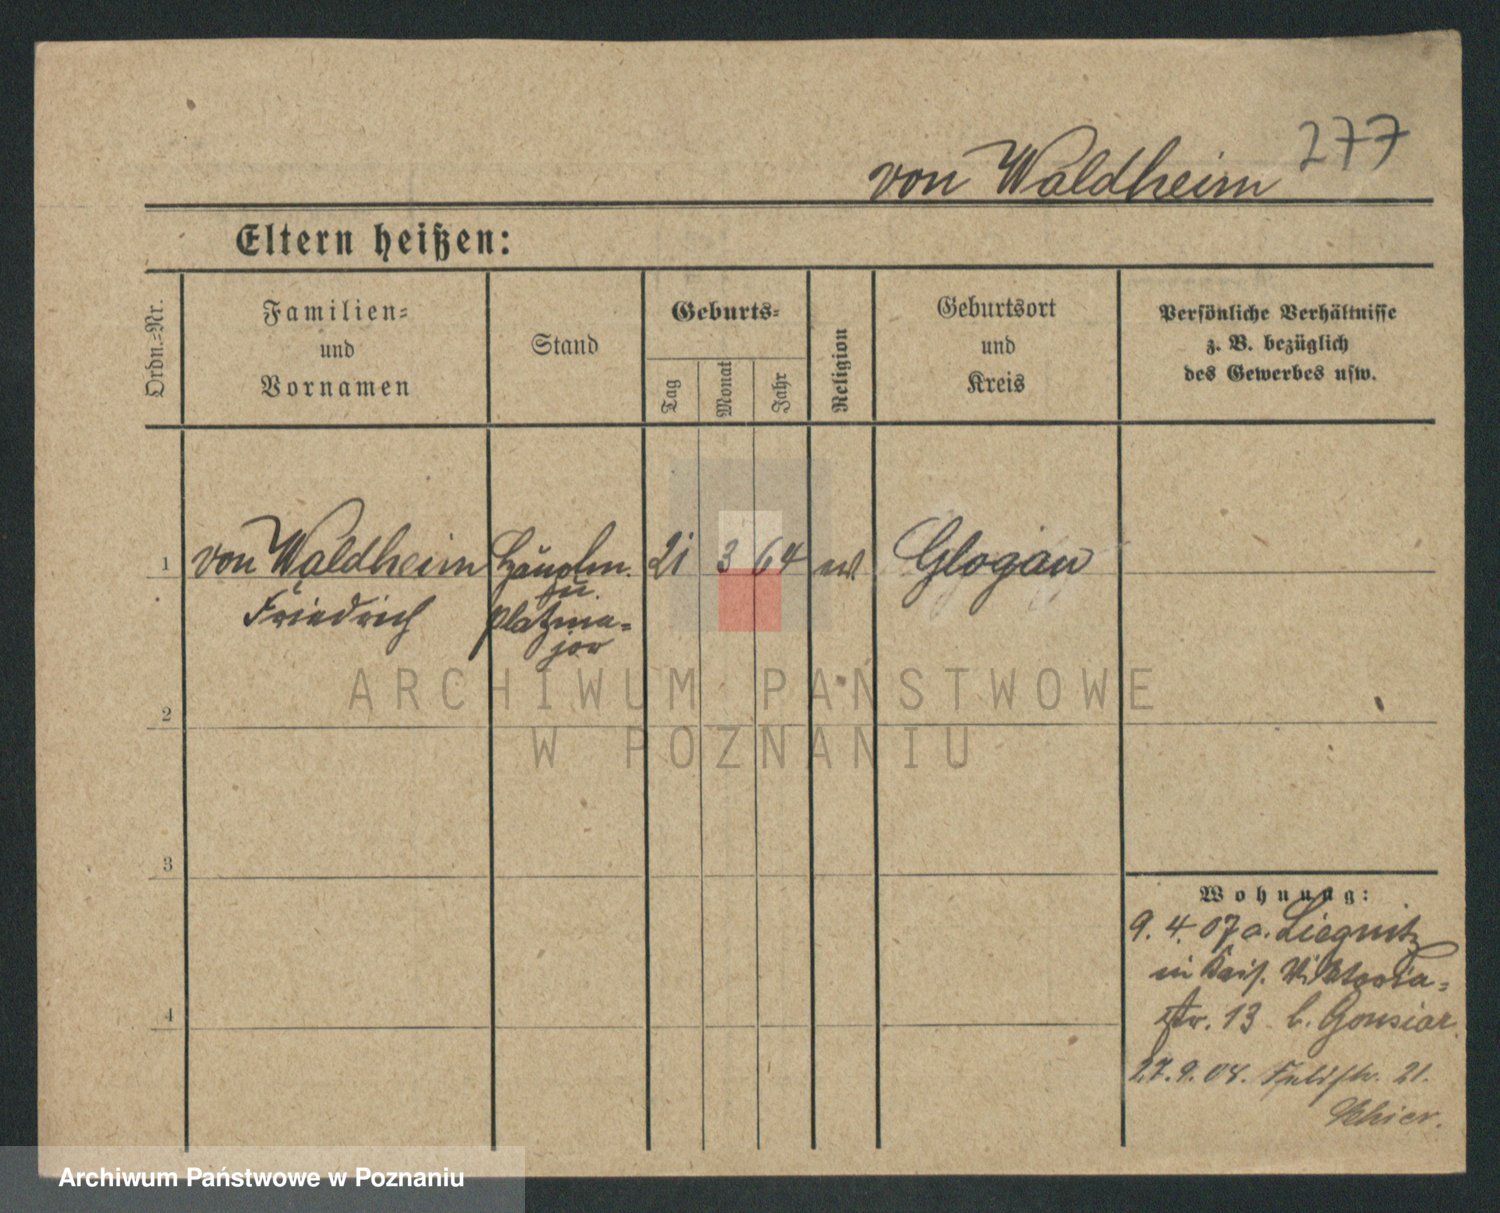 277
von Waldheim
Eltern heißen:
Ordn.=Nr.
Familien=
und
Vornamen
Stand
Geburts=
Tag
Monat
Jahr
Religion
Geburtsort
und
Kreis
Persönliche Verhältnisse
z. B. bezüglich
des Gewerbes usw.
1
von Waldheim
Friedrich
Hauptm.
u.
Platzma=
jor
21
3
64
ev
Glogau
2
3
4
Wohnung:
9. 4. 07 a. Liegnitz
in Kais. Viktoria=
str. 13 b. Gonsior.
27. 9. 08. Feldstr. 21.
ARCHIWUM PAŃSTWOWE
W POZNANIU
Archiwum Państwowe w Poznaniu